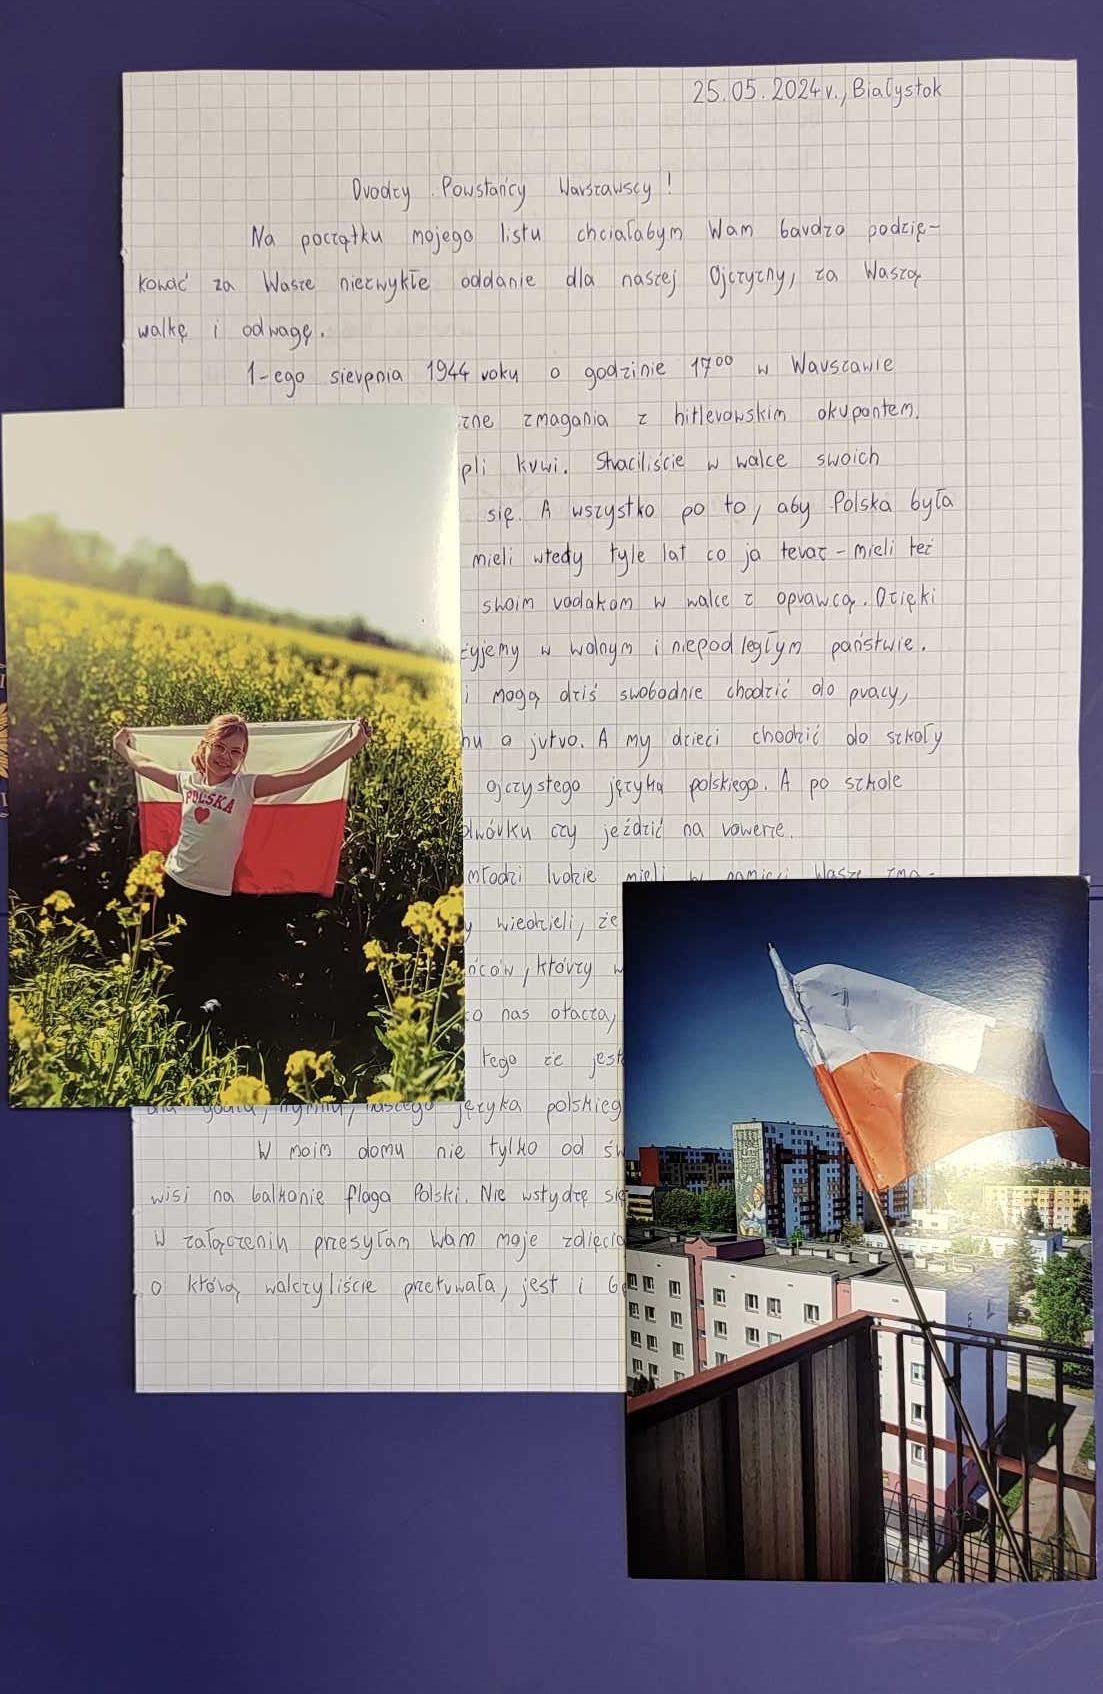 25.05.2024r., Białystok
Drodzy Powstańcy Warszawscy!
Na początku mojego listu chciałabym Wam bardzo podzię-
kować za Wasze niezwykłe oddanie dla naszej Ojczyzny, za Waszą
walkę i odwagę.
1-ego sierpnia 1944 roku o godzinie 17⁰⁰ w Warszawie
zne zmagania z hitlerowskim okupantem.
pli krwi. Straciliście w walce swoich
się. A wszystko po to, aby Polska była
mieli wtedy tyle lat co ja teraz - mieli też
swoim rodakom w walce z oprawcą. Dzięki
żyjemy w wolnym i niepodległym państwie.
i mogą dziś swobodnie chodzić do pracy,
nu o jutro. A my dzieci chodzić do szkoły
ojczystego języka polskiego. A po szkole
olwórku czy jeździć na rowerze.
młodzi ludzie mieli w pamięci Wasze zma-
y wiedzieli, że
ńców, którzy w
co nas otacza,
tego że jest
języka polskieg
W moim domu nie tylko od św
wisi na balkonie flaga Polski. Nie wstydzę się
W załączeniu przesyłam Wam moje zdjęcia
o którą walczyliście przetrwała, jest i b
POLSKA